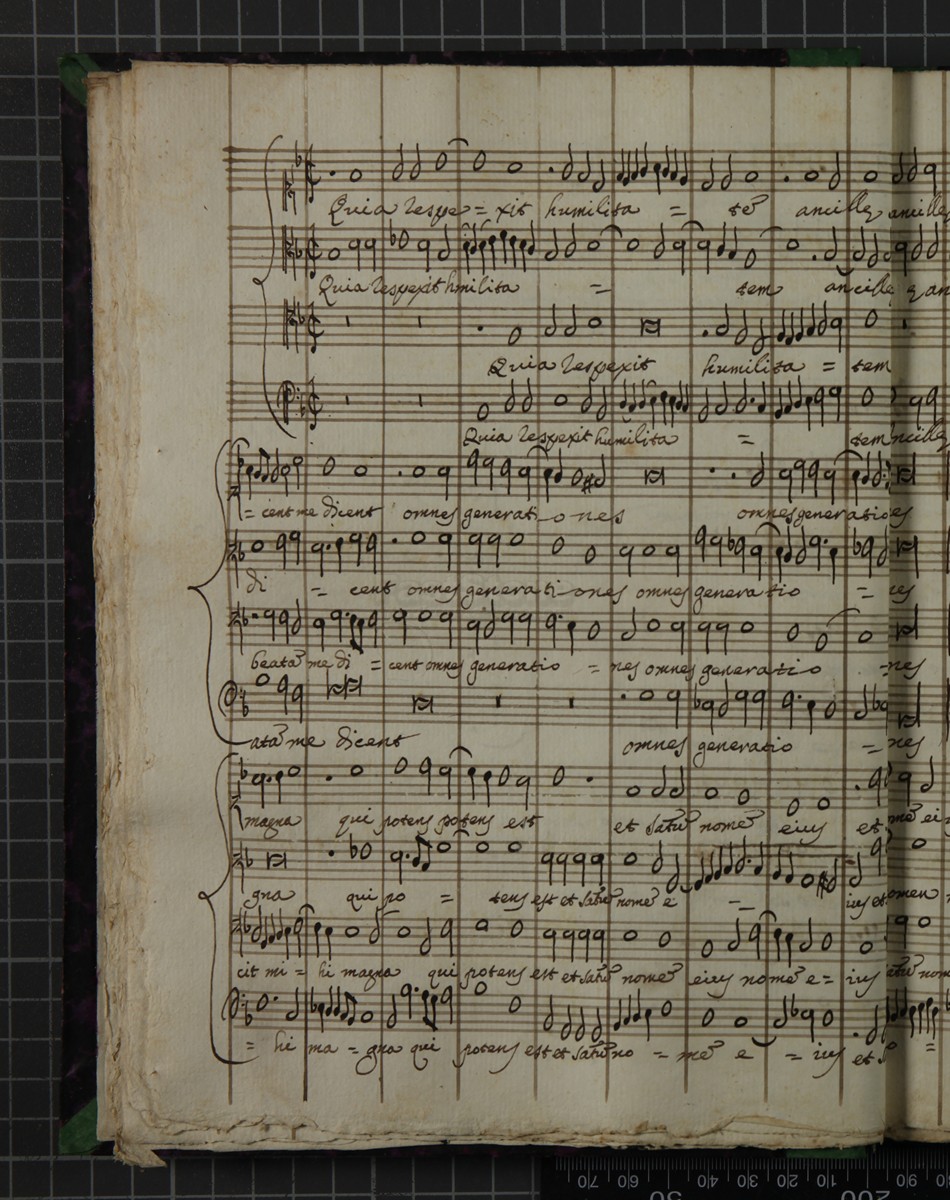 Quia respe = xit humilita = tẽ ancille ancille
Quia respexit hmilita = tem ancille
Quia respexit humilita = tem
Quia respexit humilita = tem ncille
= cent me dicent omnes generati_o_nes omnes generatio es
di = cent omnes generati_ones omnes generatio = nes
beatã me di = cent omnes generatio = nes omnes generatio =nes
atã me dicent omnes generatio = nes
magna qui potens potens est et satũ nomẽ eius et mẽ ei
gna qui po = tens est et satũ nomẽ e = ius et omen
cit mi = hi magna qui potens est et satũ nomẽ eius nomẽ e = ius
= hi ma = gna qui potens est et satũ no = mẽ e = ius et
70 60 40 30 20 10 90